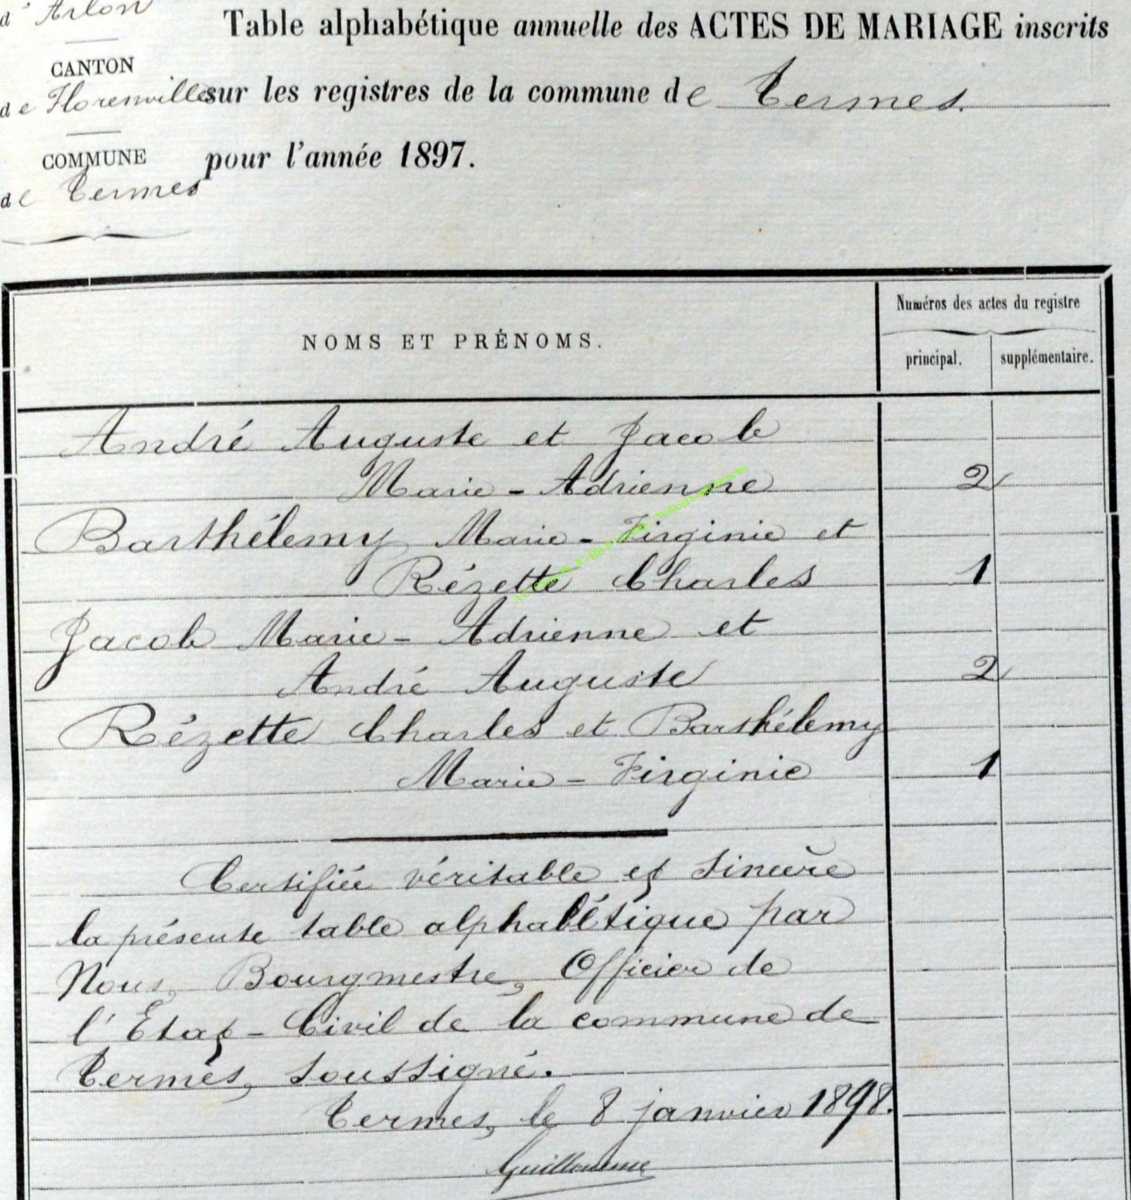 d'Arlon
Table alphabétique annuelle des ACTES DE MARIAGE inscrits
CANTON
de Florenville sur les registres de la commune de Termes.
COMMUNE
pour l'année 1897.
de Termes
NOMS ET PRÉNOMS.
Numéros des actes du registre
principal. supplémentaire.
André Auguste et Jacob
Marie-Adrienne 2
Barthélemy Marie-Virginie et
Rézette Charles 1
Jacob Marie-Adrienne et
André Auguste 2
Rézette Charles et Barthélemy
Marie-Virginie 1
Certifiée véritable et sincère
la présente table alphabétique par
Nous, Bourgmestre, Officier de
l'Etat-Civil de la commune de
Termes, soussigné.
Termes, le 8 janvier 1898.